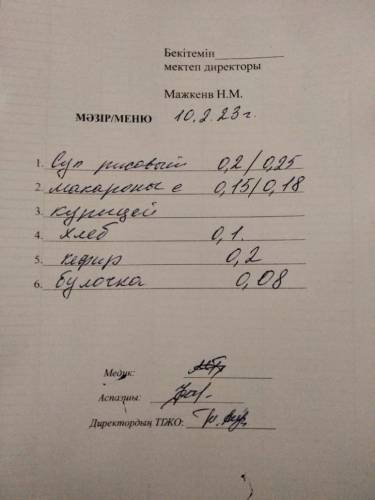 Бекітемін
мектеп директоры
Мажкенв Н.М.
МӘЗІР/МЕНЮ 10.2.23г.
1. Суп рисовый 0,2/0,25
2. макароны с 0,15/0,18
3. курицей
4. хлеб 0,1.
5. кефир 0,2
6. булочка 0,08
Медик:
Аспазшы:
Директордың ТІЖО: